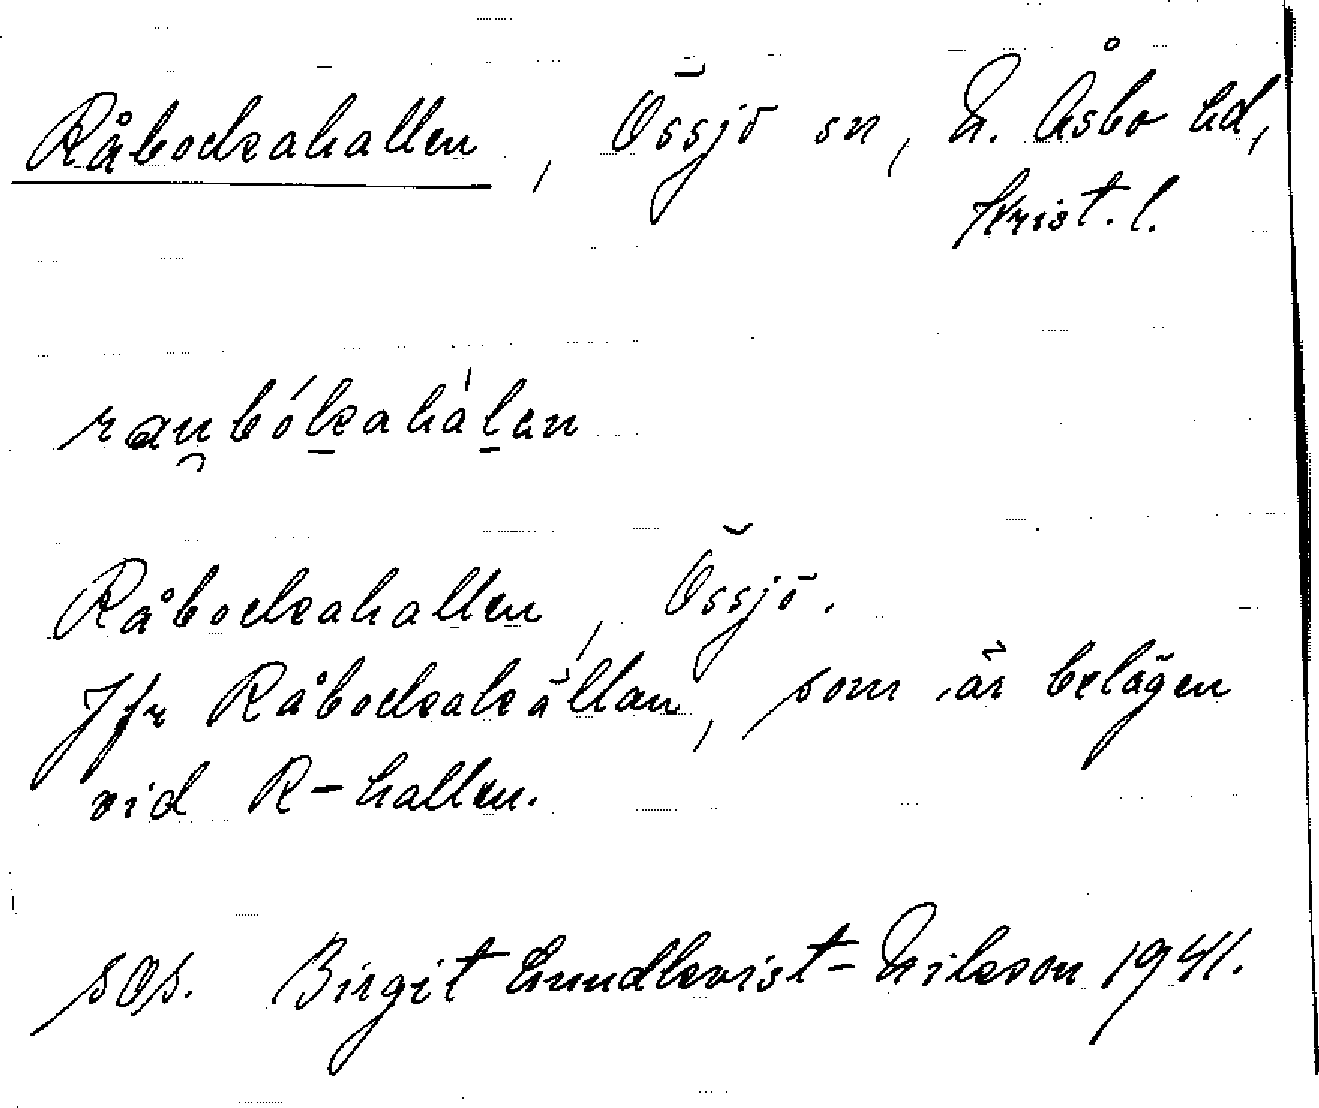 Råbocksahallen, Össjö sn, N. Åsbo hd,
Krist. l.
Råbocksahallen, Össjö.
Jfr Råbocksakällan, som är belägen
vid R-hallen.
sOs. Birgit Lundkvist-Nilsson 1941.